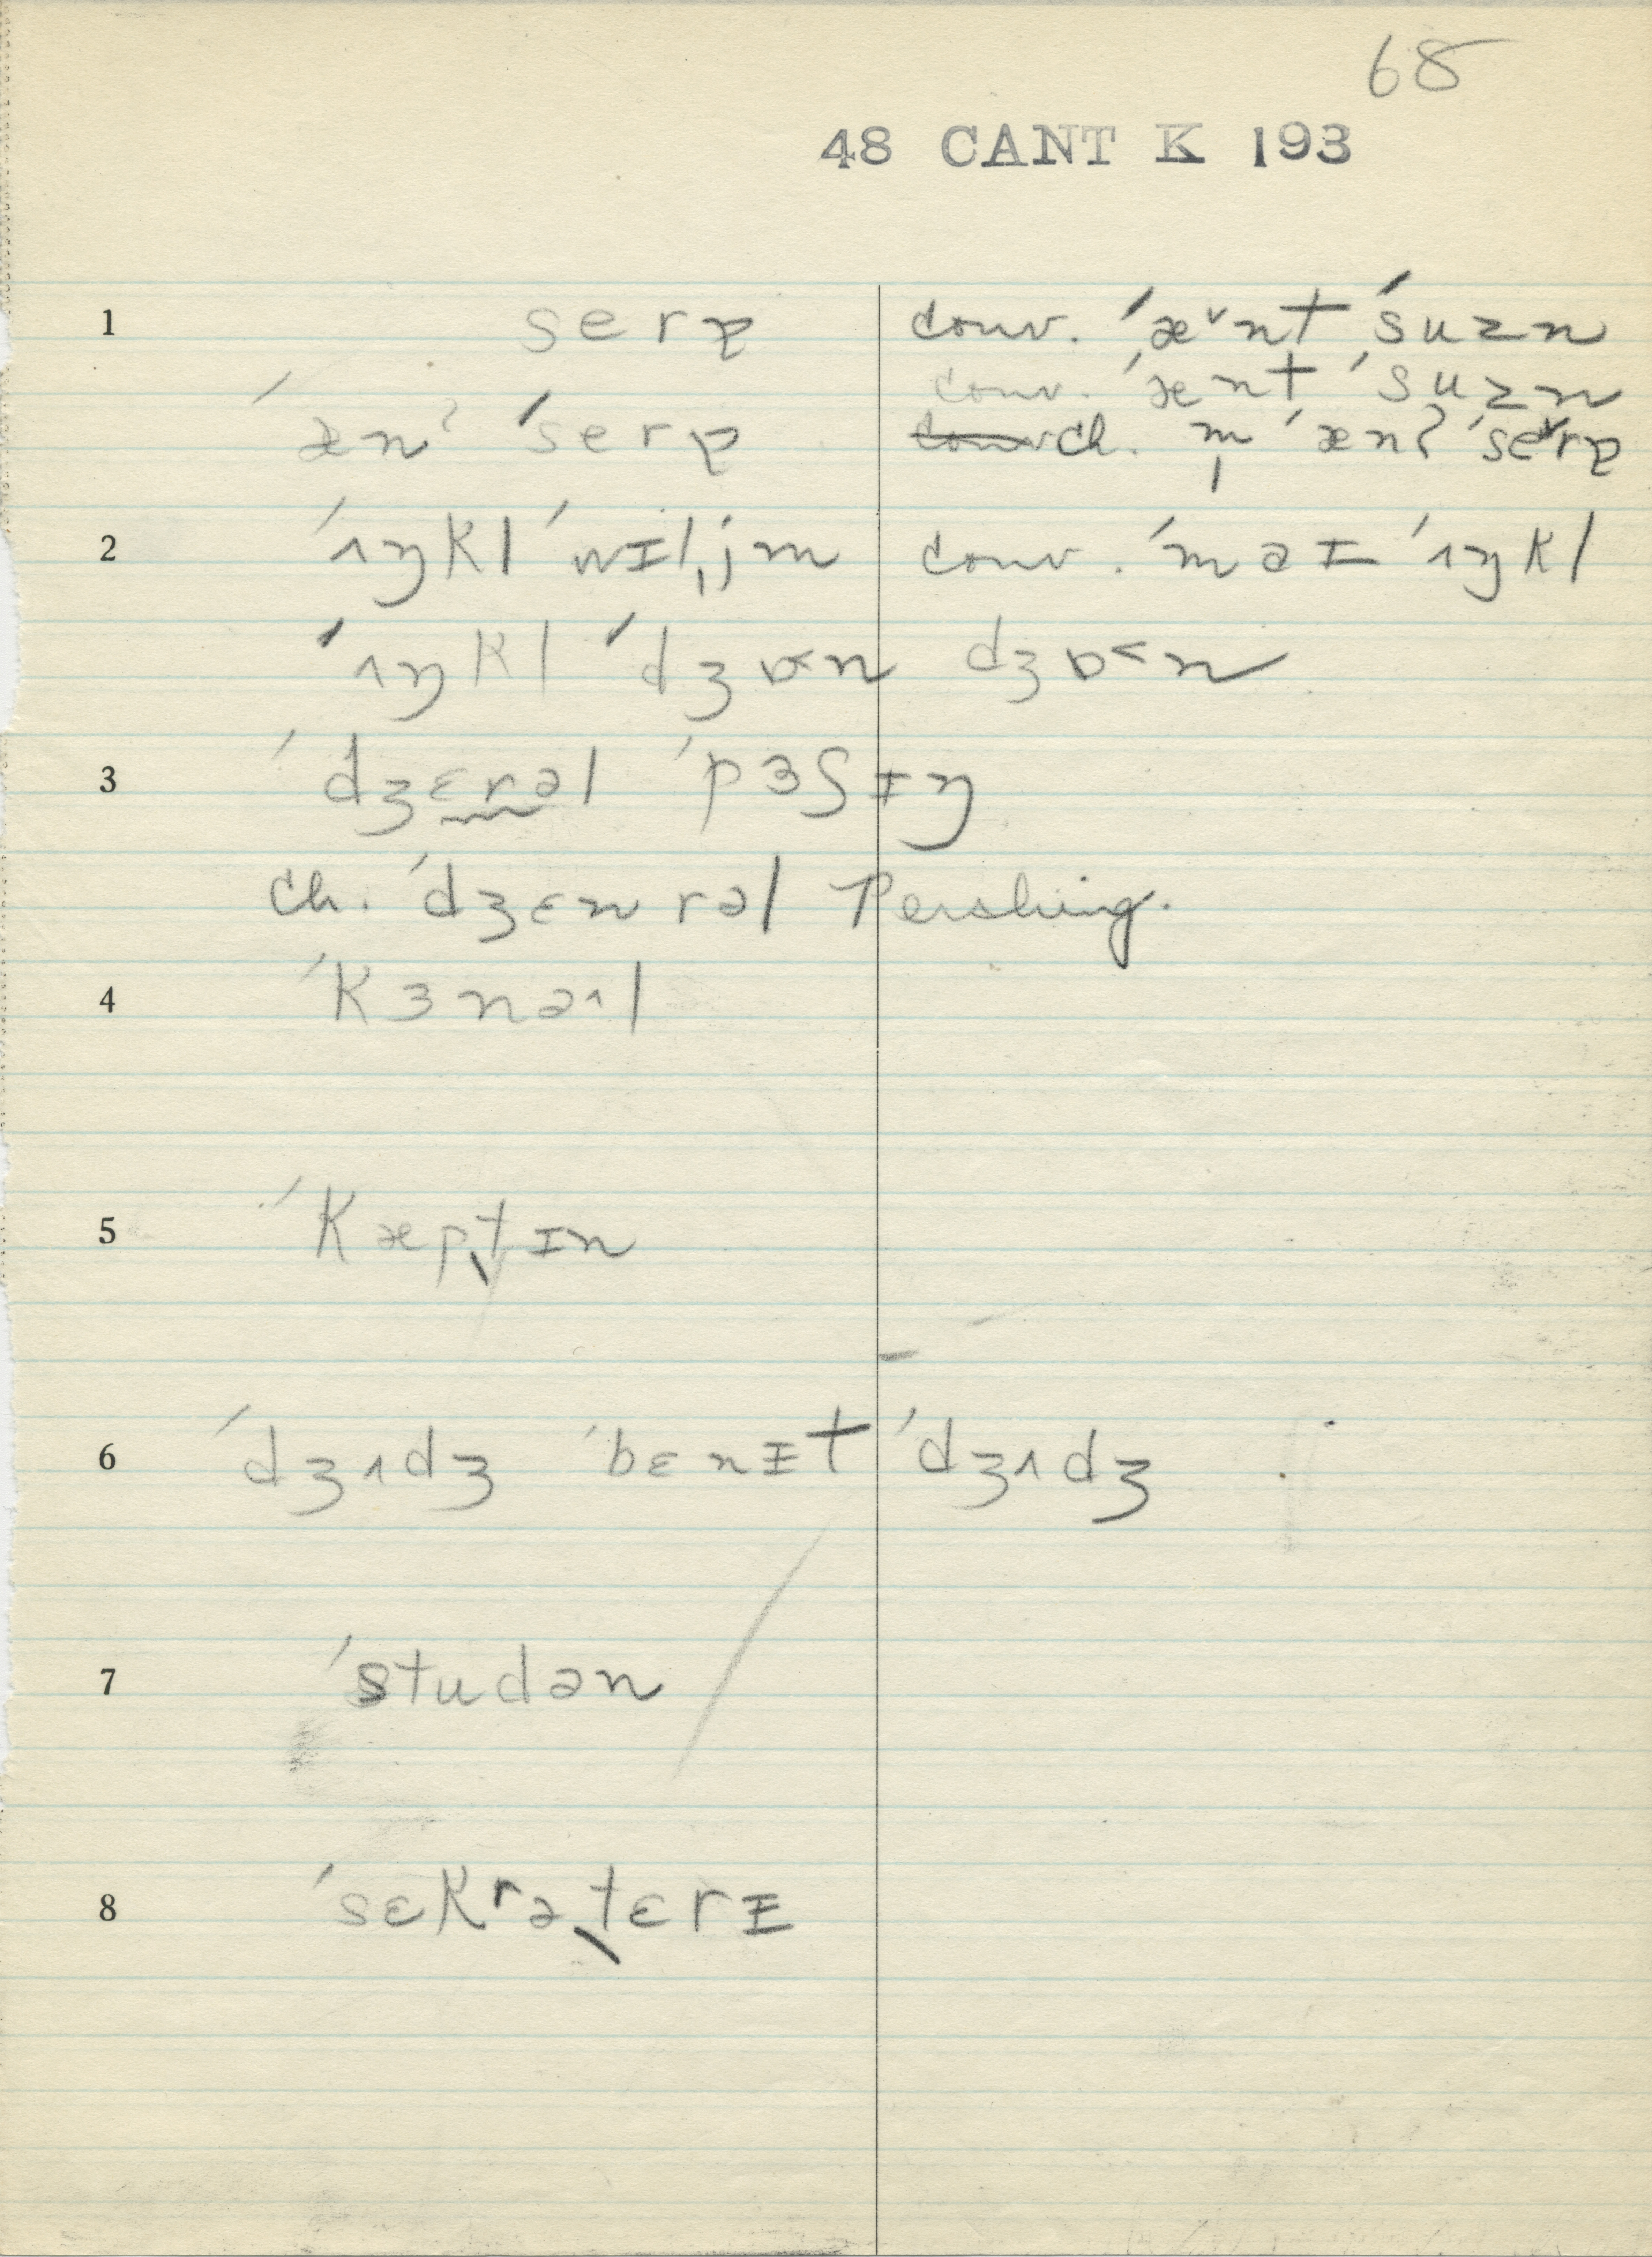 68
48 CANT K 193
1 serᵻ conv. ˈæ˅nt ˈsuzn
conv. ˈænt ˈsuzn
ˈænʔ ˈserᵻ ch. m̩ ˈænʔ ˈse˅rᵻ
2 ˈʌŋkl ˈwɪl̩jm conv. ˈmaɪ ˈʌŋkl
ˈʌŋkl ˈdʒɒ˂n dʒɒ˂n
3 ˈdʒɛrəl ˈpɜʃɪŋ
ch. ˈdʒɛnrəl Pershing.
4 ˈkɜnə^l
5 ˈkæptɪn
6 ˈdʒʌdʒ ˈbɛnɪt ˈdʒʌdʒ
7 ˈstudən
8 ˈsɛkrəˌtɛrɪ